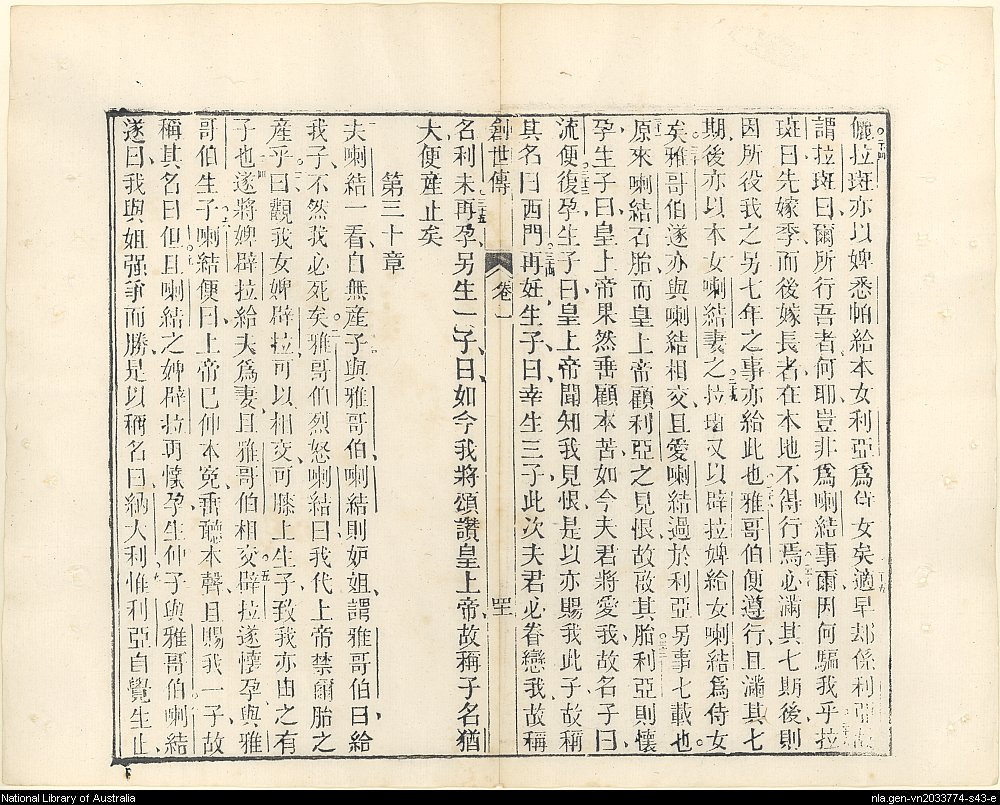 儷拉斑亦以婢悉帕給本女利亞爲侍女矣適早却係利亞
謂拉斑曰爾所行吾者何耶豈非爲喇結事爾因何騙我乎拉
斑曰先嫁季而後嫁長者在本地不得行焉必滿其七期後則
因所役我之另七年之事亦給此也雅哥伯便遵行且滿其七
期後亦以本女喇結妻之拉斑又以辟拉婢給女喇結爲侍女
矣雅哥伯遂亦與喇結相交且愛喇結過於利亞另事七載也
原來喇結石胎而皇上帝顧利亞之見恨故啟其胎利亞則懷
孕生子曰皇上帝果然垂顧本苦如今夫君將愛我故名子曰
流便復孕生子曰皇上帝聞知我見恨是以亦賜我此子故稱
其名曰西門再妊生子曰幸生三子此次夫君必眷戀我故稱
創世傳 卷一 四十
名利未再孕另生一子曰如今我將頌讚皇上帝故稱子名猶
大便產止矣
第三十章
夫喇結一看自無產子與雅哥伯喇結則妒姐謂雅哥伯曰給
我子不然我必死矣雅哥伯烈怒喇結曰我代上帝禁爾胎之
產乎曰觀我女婢辟拉可以相交可膝上生子致我亦由之有
子也遂將婢辟拉給夫爲妻且雅哥伯相交辟拉遂懷孕與雅
哥伯生子喇結便曰上帝已伸本冤垂聽本聲且賜我一子故
稱其名曰但且喇結之婢辟拉再懷孕生仲子與雅哥伯喇結
遂曰我與姐强爭而勝是以稱名曰納大利惟利亞自覺生止
National Library of Australia
nla.gen-vn2033774-s43-e